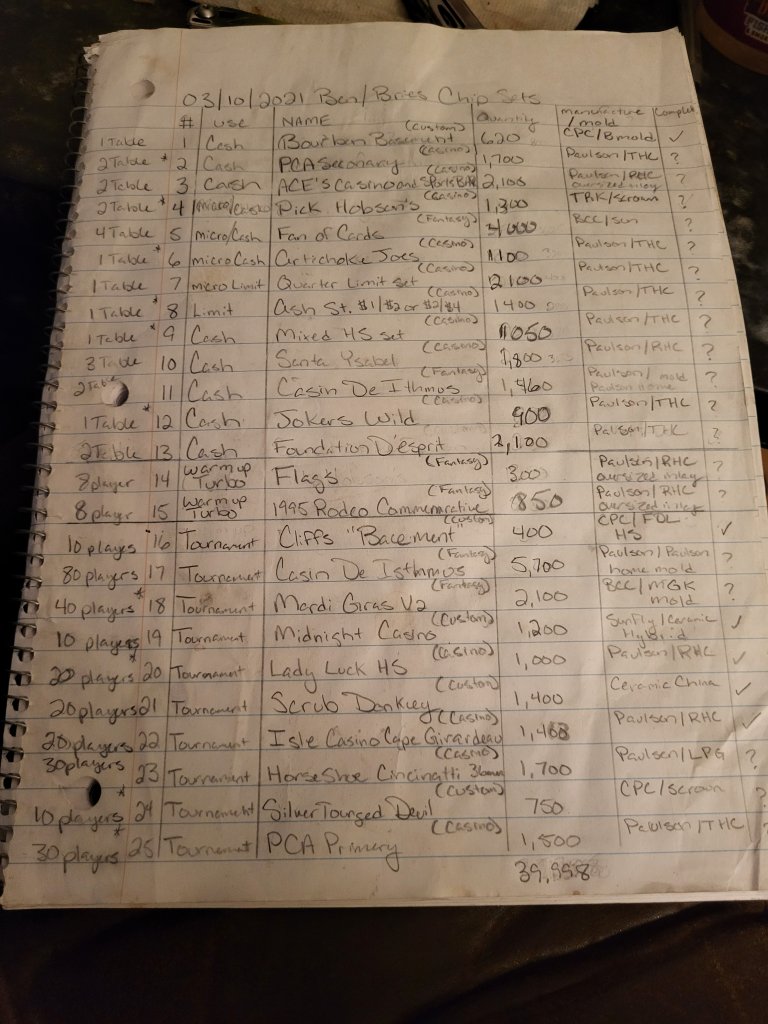 03/10/2021 Ben/Bries Chip Sets
# use NAME Quantity manufacture/mold Complete
1 Table 1 Cash Bourbon Basement (Custom) 620 CPC/Bmold ✓
2 Table * 2 Cash PCA Secondary (Casino) 1,700 Paulson/THC ?
2 Table 3 Cash ACE's Casino and Sports Bar (Casino) 2,100 Paulson/RHC oversized inlay ?
2 Table * 4 micro/Cash Pick Hobson's (Casino) 1,300 TRK/scrown ?
4 Table 5 micro/Cash Fan of Cards (Fantasy) 4000 BCC/Sun ?
1 Table * 6 micro Cash Artichoke Joes (Casino) 1100 Paulson/THC ?
1 Table 7 micro Limit Quarter Limit Set (Casino) 2100 Paulson/THC ?
1 Table * 8 Limit Ash St. $1/$2 or $2/$4 (Casino) 1400 Paulson/THC ?
1 Table * 9 Cash Mixed HS set (Casino) 1050 Paulson/THC ?
3 Table 10 Cash Santa Ysabel (Casino) 1,800 Paulson/RHC ?
2 Table 11 Cash Casin De Ithmus (Fantasy) 1,460 Paulson/ mold Paulson home ?
1 Table * 12 Cash Jokers Wild (Casino) 900 Paulson/THC ?
2 Table 13 Cash Foundation D'esprit 2,100 Palson/THC ?
8 player 14 warm up Turbo Flags (Fantasy) 300 Paulson/RHC oversized inlay ?
8 player 15 warm up Turbo 1995 Rodeo Commemorative (Fantasy) 850 Paulson/RHC oversized inlay ?
10 players * 16 Tournament Cliffs "Bacement" (Custom) 400 CPC/FDL HS ✓
80 players 17 Tournament Casin De Isthmus (Fantasy) 5,700 Paulson/Paulson home mold ?
40 players * 18 Tournament Mardi Gras V2 (Fantasy) 2,100 BCC/MGK mold ?
10 players 19 Tournament Midnight Casino (Custom) 1,200 Sunfly/Ceramic Hybrid ✓
20 players * 20 Tournament Lady Luck HS (Casino) 1,000 Paulson/RHC ✓
20 players 21 Tournament Scrub Donkey (Custom) 1,400 Ceramic China ✓
20 players 22 Tournament Isle Casino Cape Girardeau (Casino) 1,468 Paulson/RHC ✓
30 players 23 Tournament HorseShoe Cincinatti (Casino) 1,700 Paulson/LPG ?
10 players * 24 Tournament Silver Tounged Devil (Custom) 750 CPC/Scrown ?
30 players * 25 Tournament PCA Primary (Casino) 1,500 Paulson/THC ?
39,998